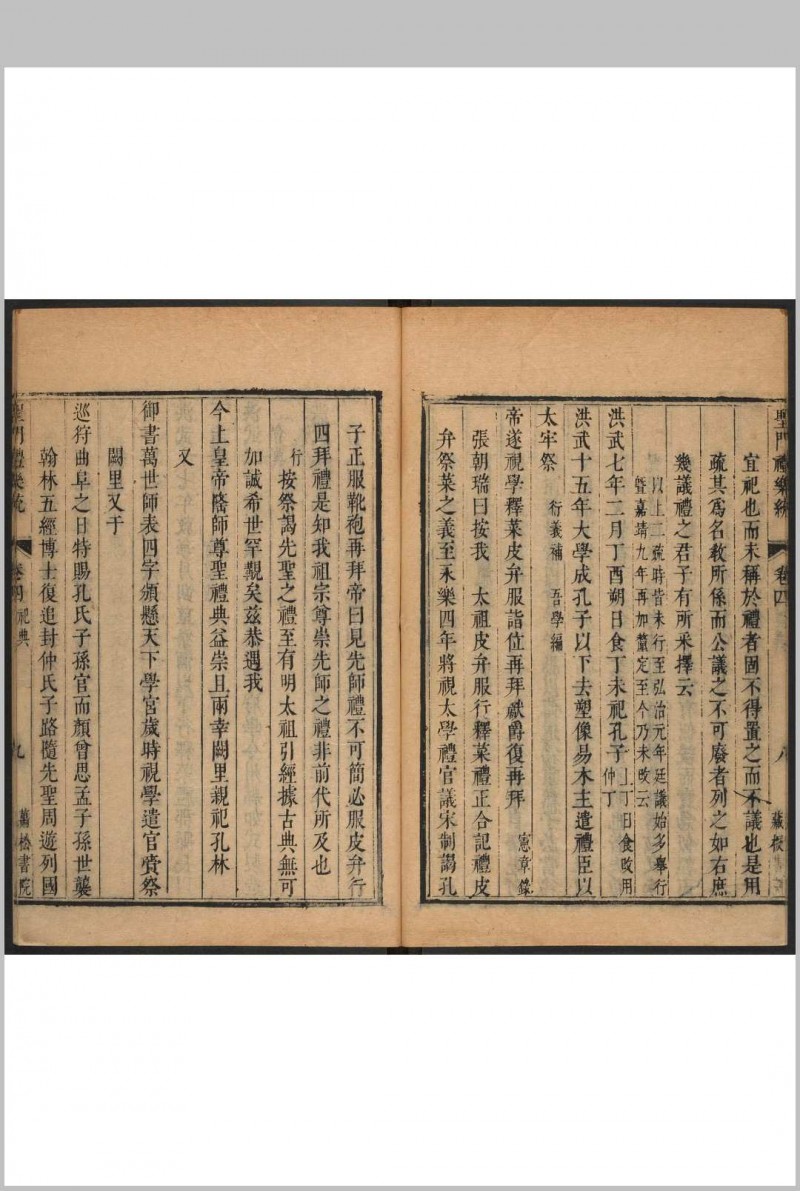 聖門禮樂統 卷四 八 藏板
宜祀也而未稱於禮者固不得置之而不議也是用
疏其爲名敎所係而公議之不可廢者列之如右庶
幾議禮之君子有所釆擇云
以上二疏時皆未行至弘治元年廷議始多舉行
曁嘉靖九年再加釐定至今乃未改云
洪武七年二月丁酉朔日食丁未祀孔子上丁日食改用
仲丁
洪武十五年大學成孔子以下去塑像易木主遣禮臣以
太牢祭 衍義補 吾學編
帝遂視學釋菜皮弁服詣位再拜獻爵復再拜 憲章錄
張朝瑞曰按我 太祖皮弁服行釋菜禮正合記禮皮
弁祭菜之義至永樂四年將視太學禮官議宋制謁孔
子正服靴袍再拜帝曰見先師禮不可簡必服皮弁行
四拜禮是知我祖宗尊崇先師之禮非前代所及也
行按祭謁先聖之禮至有明太祖引經據古典無可
加誠希世罕覯矣茲恭遇我
今上皇帝隆師尊聖禮典益崇且兩幸闕里親祀孔林
又
御書萬世師表四字頒懸天下學宮歲時視學遣官賫祭
闕里又于
巡狩曲阜之日特賜孔氏子孫官而顏曾思孟子孫世襲
翰林五經博士復追封仲氏子路隨先聖周遊列國
聖門禮樂統 卷四 祀典 九 萬松書院